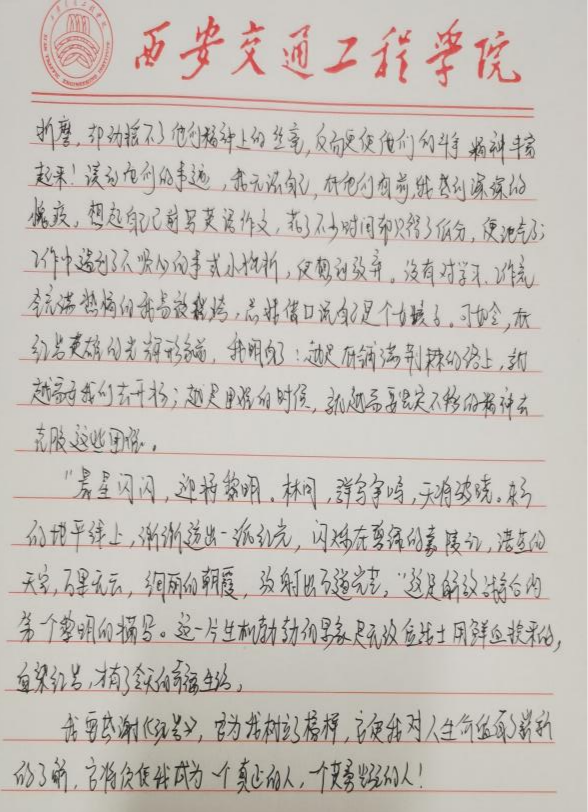 西安交通工程学院
折磨，却动摇不了他们精神上的丝毫，反而更使他们的斗争精神丰富
起来！读到他们的事迹，我无法自己，在他们面前我感到深深的
愧疚，想起自己前写英语作文，花了不少时间却只得了低分，便泄气了；
工作中遇到了不顺心的事或小挫折，便想到放弃。没有对学习、工作充
满热情的我易被我垮，总找借口说自己是个女孩子。可如今，在
红岩英雄的光辉形象前，我明白了：越是在铺满荆棘的路上，就
越需要我们去开拓；越是困难的时候，就越需要坚定不移的精神去
克服这些困难。
“晨星闪闪，迎接黎明。林间，群鸟争鸣，天将破晓。东方
的地平线上，渐渐透出一派红光，闪烁在碧绿的嘉陵江，湛蓝的
天空，万里无云，绚丽的朝霞，放射出万道光芒。”这是解放
第一个黎明的描写。这一片生机勃勃的景象是无数位战士用鲜血换来的，
血染红岩，才有了今天的幸福生活。
我要感谢《红岩》，它为我树立了榜样，它使我对人生价值有了崭新
的了解，它将促使我成为一个真正的人，一个英勇坚定的人！